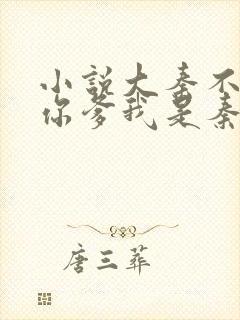 小说大秦不
你爹我是秦
唐三葬